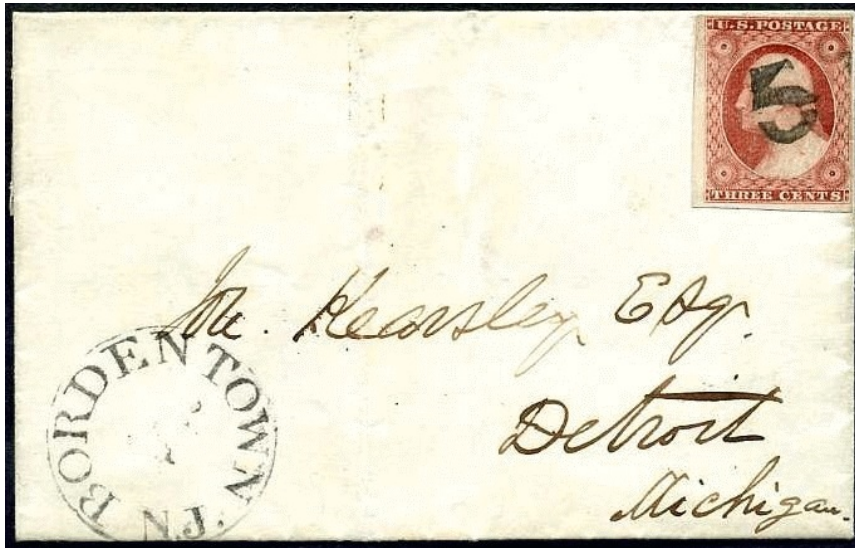 U.S. POSTAGE
5
THREE CENTS
Jon. Kearsley Esq.
Detroit
Michigan.
BORDENTOWN N.J.